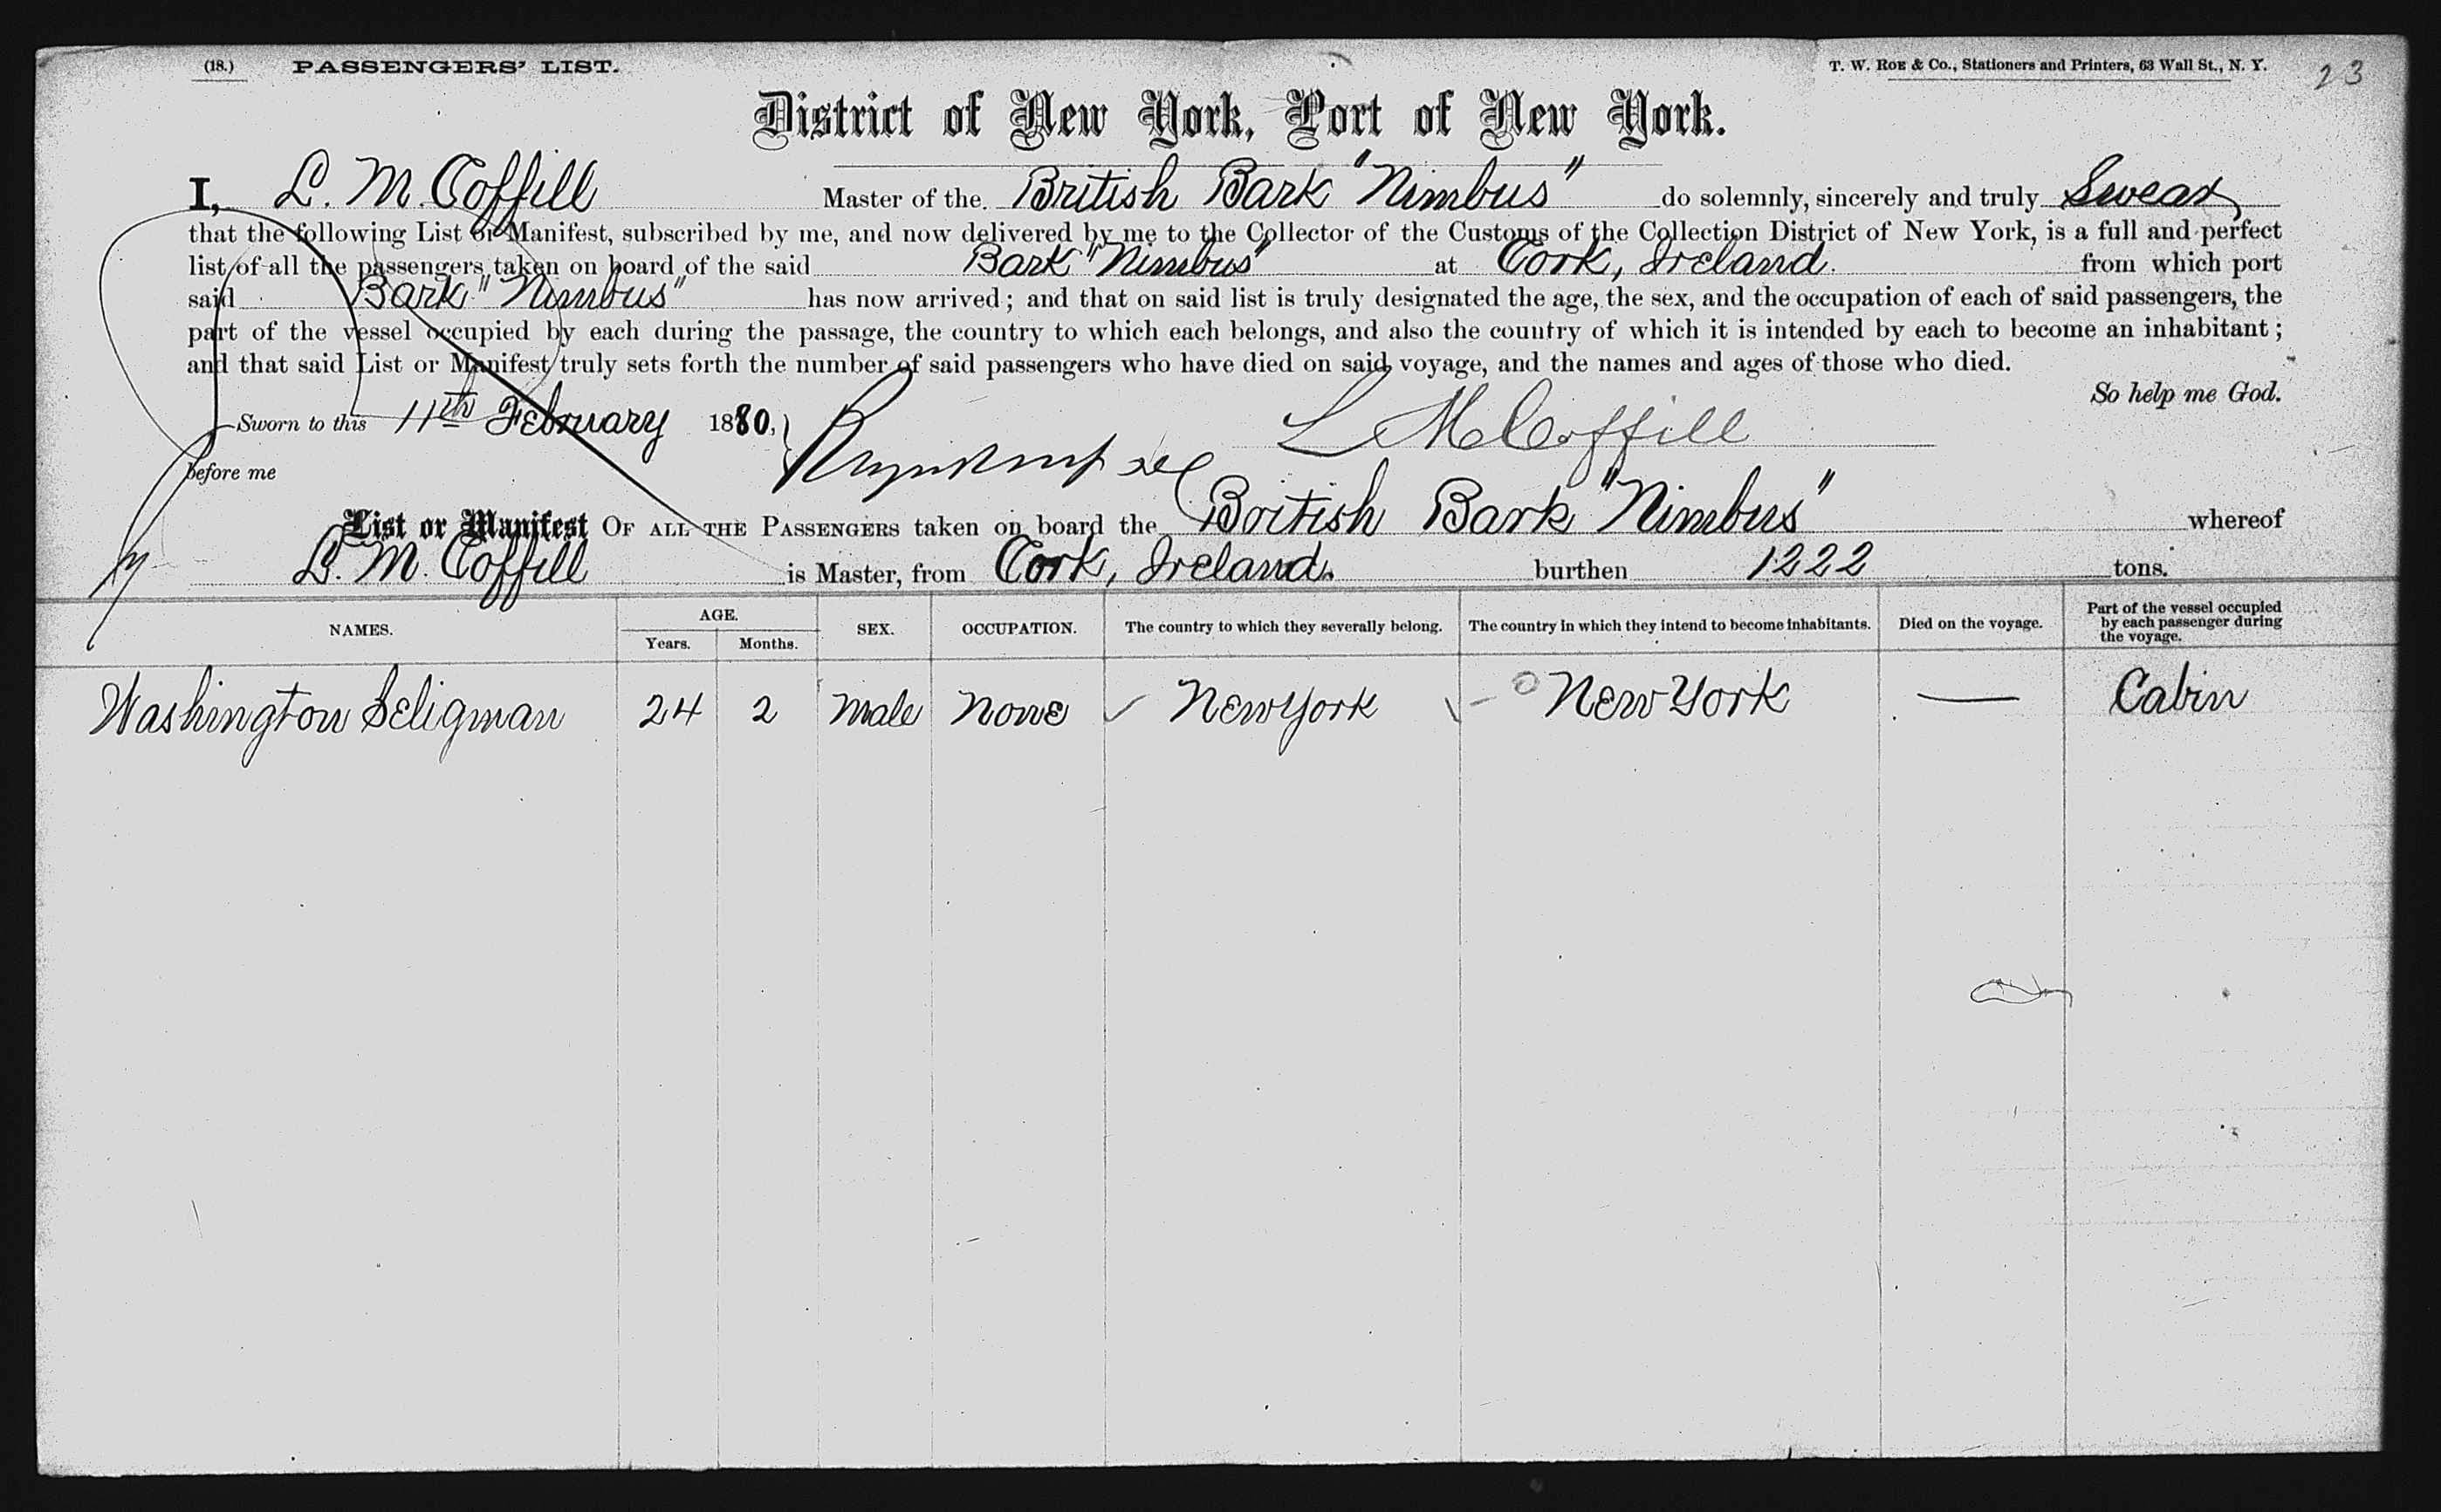 (18.) PASSENGERS' LIST. T. W. ROE & Co., Stationers and Printers, 63 Wall St., N. Y. 23
District of New York, Port of New York.
I, L. M. Coffill Master of the British Bark "Nimbus" do solemnly, sincerely and truly Swear
that the following List or Manifest, subscribed by me, and now delivered by me to the Collector of the Customs of the Collection District of New York, is a full and perfect
list of all the passengers taken on board of the said Bark "Nimbus" at Cork, Ireland. from which port
said Bark "Nimbus" has now arrived; and that on said list is truly designated the age, the sex, and the occupation of each of said passengers, the
part of the vessel occupied by each during the passage, the country to which each belongs, and also the country of which it is intended by each to become an inhabitant;
and that said List or Manifest truly sets forth the number of said passengers who have died on said voyage, and the names and ages of those who died.
So help me God.
Sworn to this 11th February 1880, L M Coffill
before me
List or Manifest OF ALL THE PASSENGERS taken on board the British Bark "Nimbus" whereof
L. M. Coffill is Master, from Cork, Ireland. burthen 1222 tons.
NAMES. AGE. Years. Months. SEX. OCCUPATION. The country to which they severally belong. The country in which they intend to become inhabitants. Died on the voyage. Part of the vessel occupied by each passenger during the voyage.
Washington Seligman 24 2 Male None New York New York — Cabin